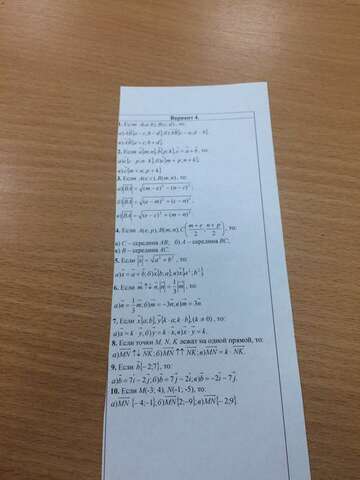 Вариант 4.
1. Если A(a; b), B(c; d), то:
а) AB{a − c; b − d}; б) AB{c − a; d − b};
в) AB{a + c; b + d}.
2. Если a{m; n}, b{p; k}, c = a + b, то:
в) c{m + n; p + k}
3. Если A(e; c), B(m; n), то:
4. Если A(e; p), B(m; n), C((m + e)/2; (n + p)/2), то:
а) C – середина AB; б) A – середина BC;
в) B – середина AC.
5. Если |x| = √(a² + b²), то:
6. Если m ↑↓ n, |n| = 1/3 |m|, то:
7. Если x{a; b}, y{k · a; k · b}, (k ≠ 0), то:
а) x = k · y; б) y = k · x; в) x · y = k.
8. Если точки M, N, K лежат на одной прямой, то:
а) MN ↑↓ NK; б) MN ↑↑ NK; в) MN = k · NK.
9. Если b{−2; 7}, то:
а) b = 7i − 2j; б) b = 7j − 2i; в) b = −2i − 7j.
10. Если M(-3; 4), N(-1; -5), то:
а) MN{−4; −1}; б) MN{2; −9}; в) MN{−2; 9}.